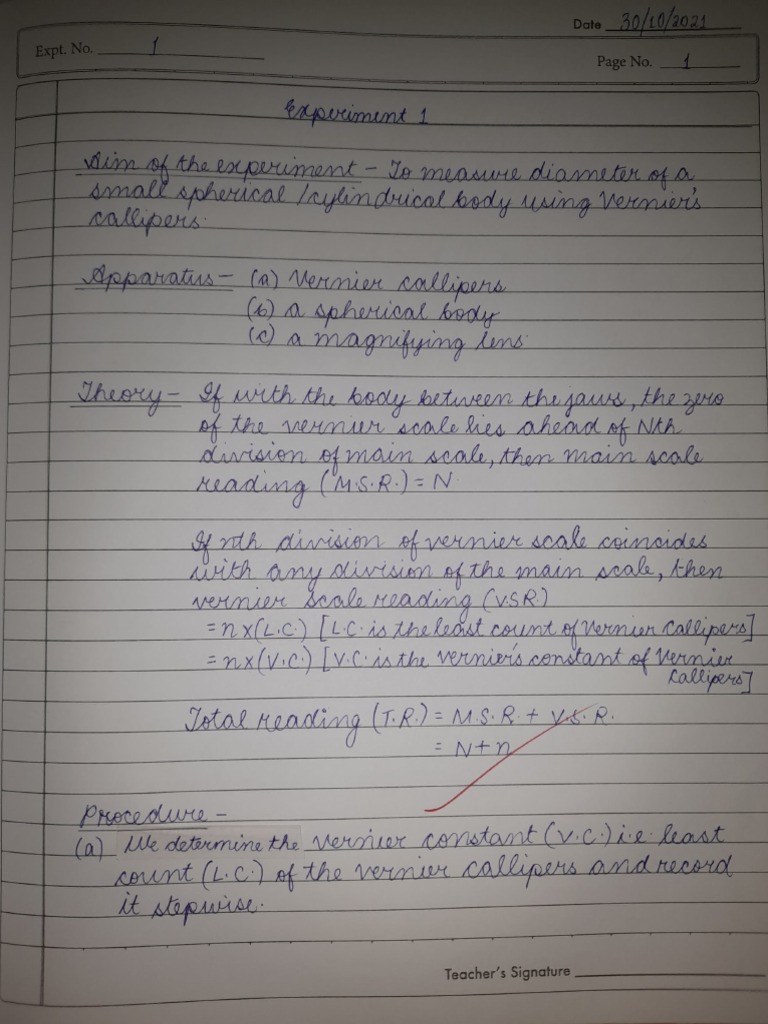 Date 30/10/2021
Expt. No. 1
Page No. 1
Experiment 1
Aim of the experiment - To measure diameter of a
small spherical / cylindrical body using Vernier's
callipers.
Apparatus - (a) Vernier callipers
(b) a spherical body
(c) a magnifying lens
Theory - If with the body between the jaws, the zero
of the vernier scale lies ahead of Nth
division of main scale, then main scale
reading (M.S.R.) = N
If nth division of vernier scale coincides
with any division of the main scale, then
vernier scale reading (V.S.R.)
= n x (L.C.) [L.C. is the least count of Vernier Callipers]
= n x (V.C.) [V.C. is the vernier's constant of Vernier
Callipers]
Total reading (T.R.) = M.S.R. + V.S.R.
= N + n
Procedure -
(a) We determine the vernier constant (V.C.) i.e. least
count (L.C.) of the vernier callipers and record
it stepwise.
Teacher's Signature